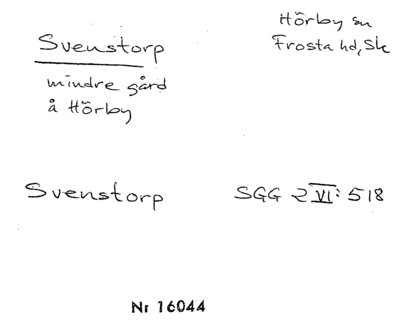 Svenstorp
Hörby sn
Frosta hd, Sk
mindre gård
å Hörby
Svenstorp
SGG 2 VI: 518
Nr 16044